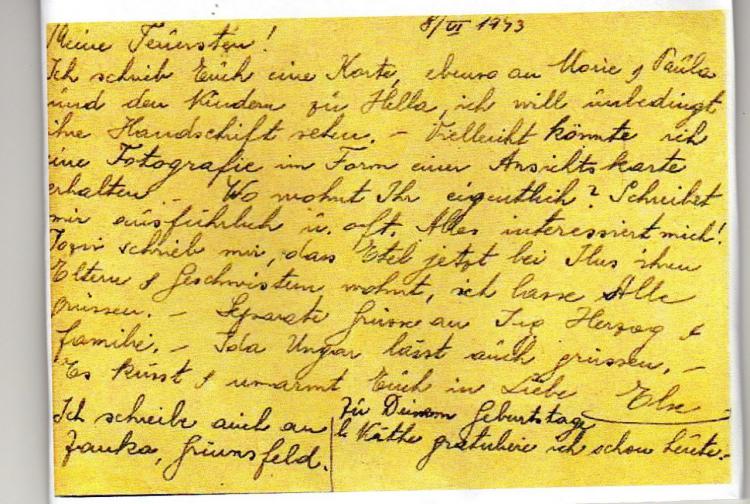 8/VI 1943
Meine Teuersten!
Ich schrieb Euch eine Karte, ebenso an Marie & Paula
und den Kindern zu Hella, ich will unbedingt
ihre Handschift sehen. – Vielleicht könnte ich
eine Fotografie im Form einer Ansichtskarte
erhalten. – Wo wohnt Ihr eigentlich? Schreibet
mir ausführlich u. oft. Alles interessiert mich!
schrieb mir, dass Etel jetzt bei Ilus ihren
Eltern & Geschwistern wohnt, ich lasse Alle
grüssen. – Separate Grüsse an Sig Herzog &
Familie. – Ida Ungar lässt auch grüssen. –
Es küsst & umarmt Euch in Liebe Else
Ich schreibe auch an
Janka, Grünsfeld.
Zu Deinem Geburtstage
l. Käthe gratuliere ich schon heute.–